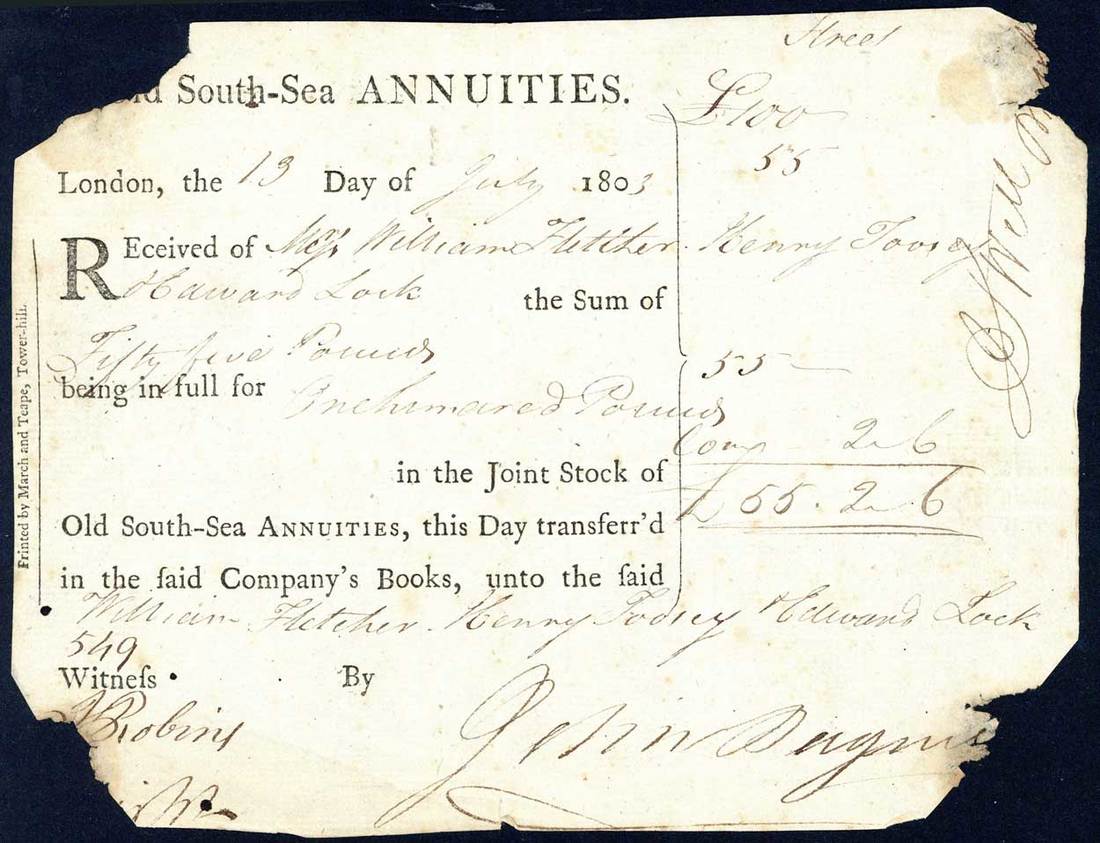 Street
Old South-Sea ANNUITIES.
£100
55
London, the 13 Day of July 1803
REceived of Mess.rs William Fletcher Henry Toosey
& Edward Lock the Sum of
Fifty five Pounds
being in full for 55
One hundred Pounds
Com 2 6
in the Joint Stock of
£ 55. 2 6
Old South-Sea ANNUITIES, this Day transferr'd
in the ſaid Company's Books, unto the ſaid
William Fletcher Henry Toosey & Edward Lock
549
Witneſs By
Robins
John
Printed by March and Teape, Tower-hill.
Well